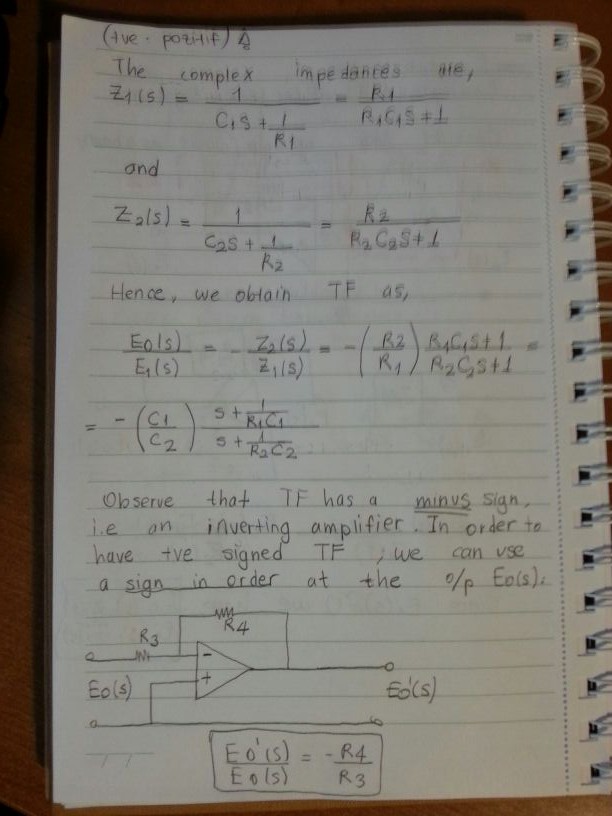 (+ve - pozitif)
The complex impedances are,
Z1(s) = 1 / (C1s + 1/R1) = R1 / (R1C1s+1)
and
Z2(s) = 1 / (C2s + 1/R2) = R2 / (R2C2s+1)
Hence, we obtain TF as,
E0(s)/E1(s) = - Z2(s)/Z1(s) = -(R2/R1) (R1C1s+1)/(R2C2s+1) =
= -(C1/C2) (s + 1/R1C1)/(s + 1/R2C2)
Observe that TF has a minus sign,
i.e an inverting amplifier. In order to
have +ve signed TF , we can use
a sign in order at the o/p E0(s).
R4
R3
-
+
E0(s)
E0'(s)
E0'(s)/E0(s) = -R4/R3